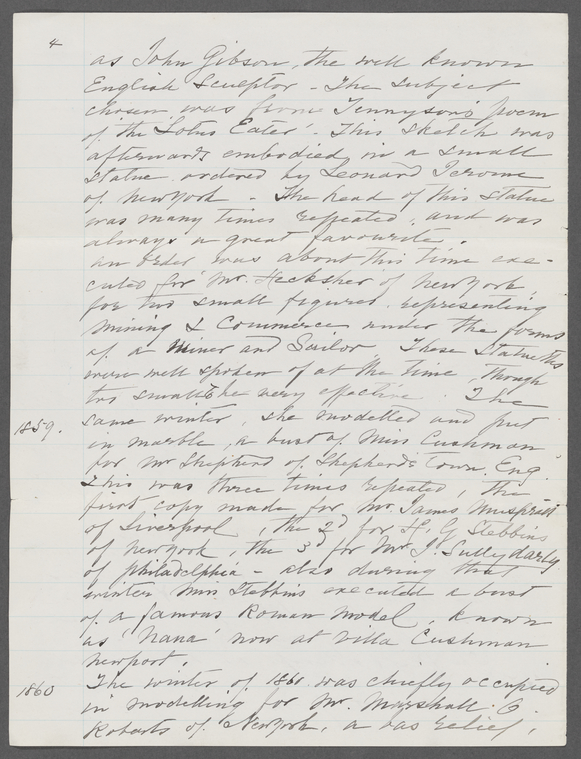 4
as John Gibson, the well known
English Sculptor - The subject
chosen was from Tennyson's poem
of the 'Lotus Eater' - This sketch was
afterwards embodied in a small
Statue ordered by Leonard Jerome
of New York - The head of this Statue
was many times repeated, and was
always a great favourite.
An order was about this time exe-
cuted for Mr. Hecksher of New York,
for two small figures representing
Mining & Commerce under the forms
of a Miner and Sailor These Statuettes
were well spoken of at the time, though
too small to be very effective. The
1859. same winter, she modelled and put
in marble, a bust of Miss Cushman
for Mr Shepherd of Shepherd's Town, Eng.
This was three times repeated, the
first copy made for Mr. James Muspratt
of Liverpool the 2d for H. G Stebbins
of New York, the 3d for Mr J. Sully darly
of Philadelphia - also during that
winter Miss Stebbins executed a bust
of a famous Roman Model, known
as 'Nana' now at Villa Cushman
Newport.
1860 The winter of 1860 was chiefly occupied
in modelling for Mr. Marshall O.
Roberts of New York, a bas relief,